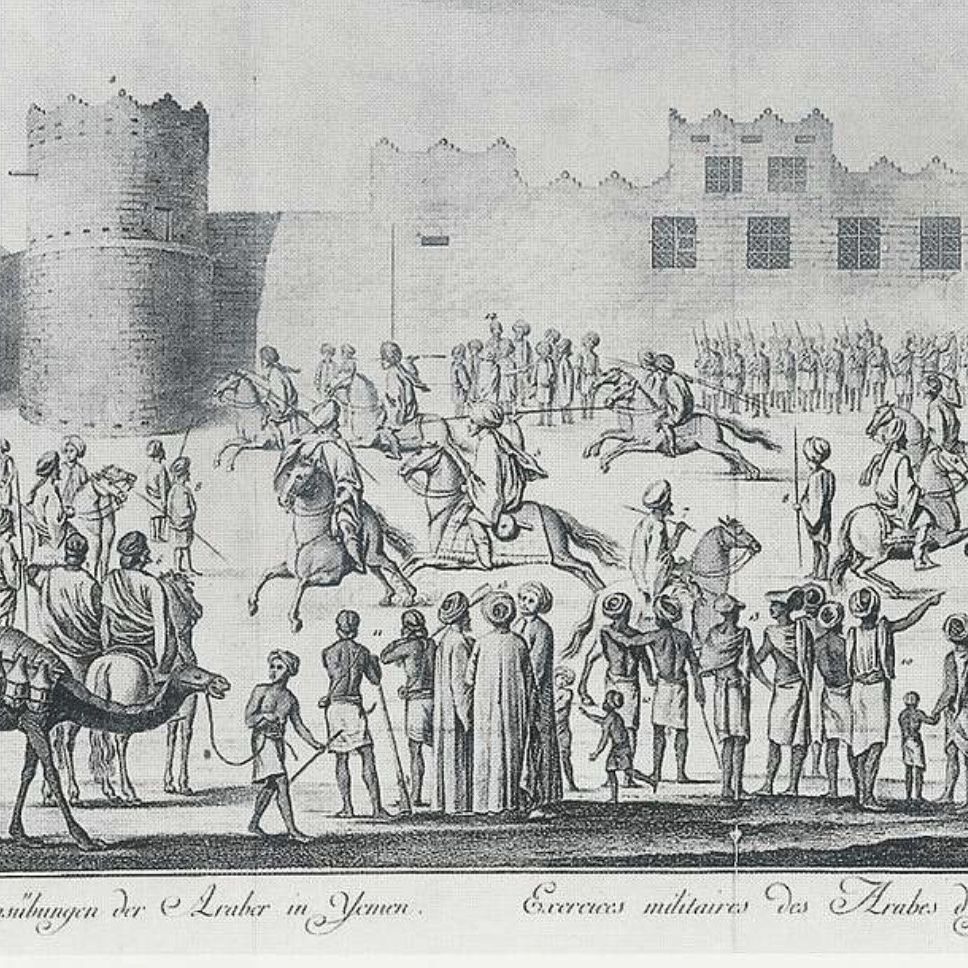 sübungen der Araber in Yemen. Exercices militaires des Arabes d